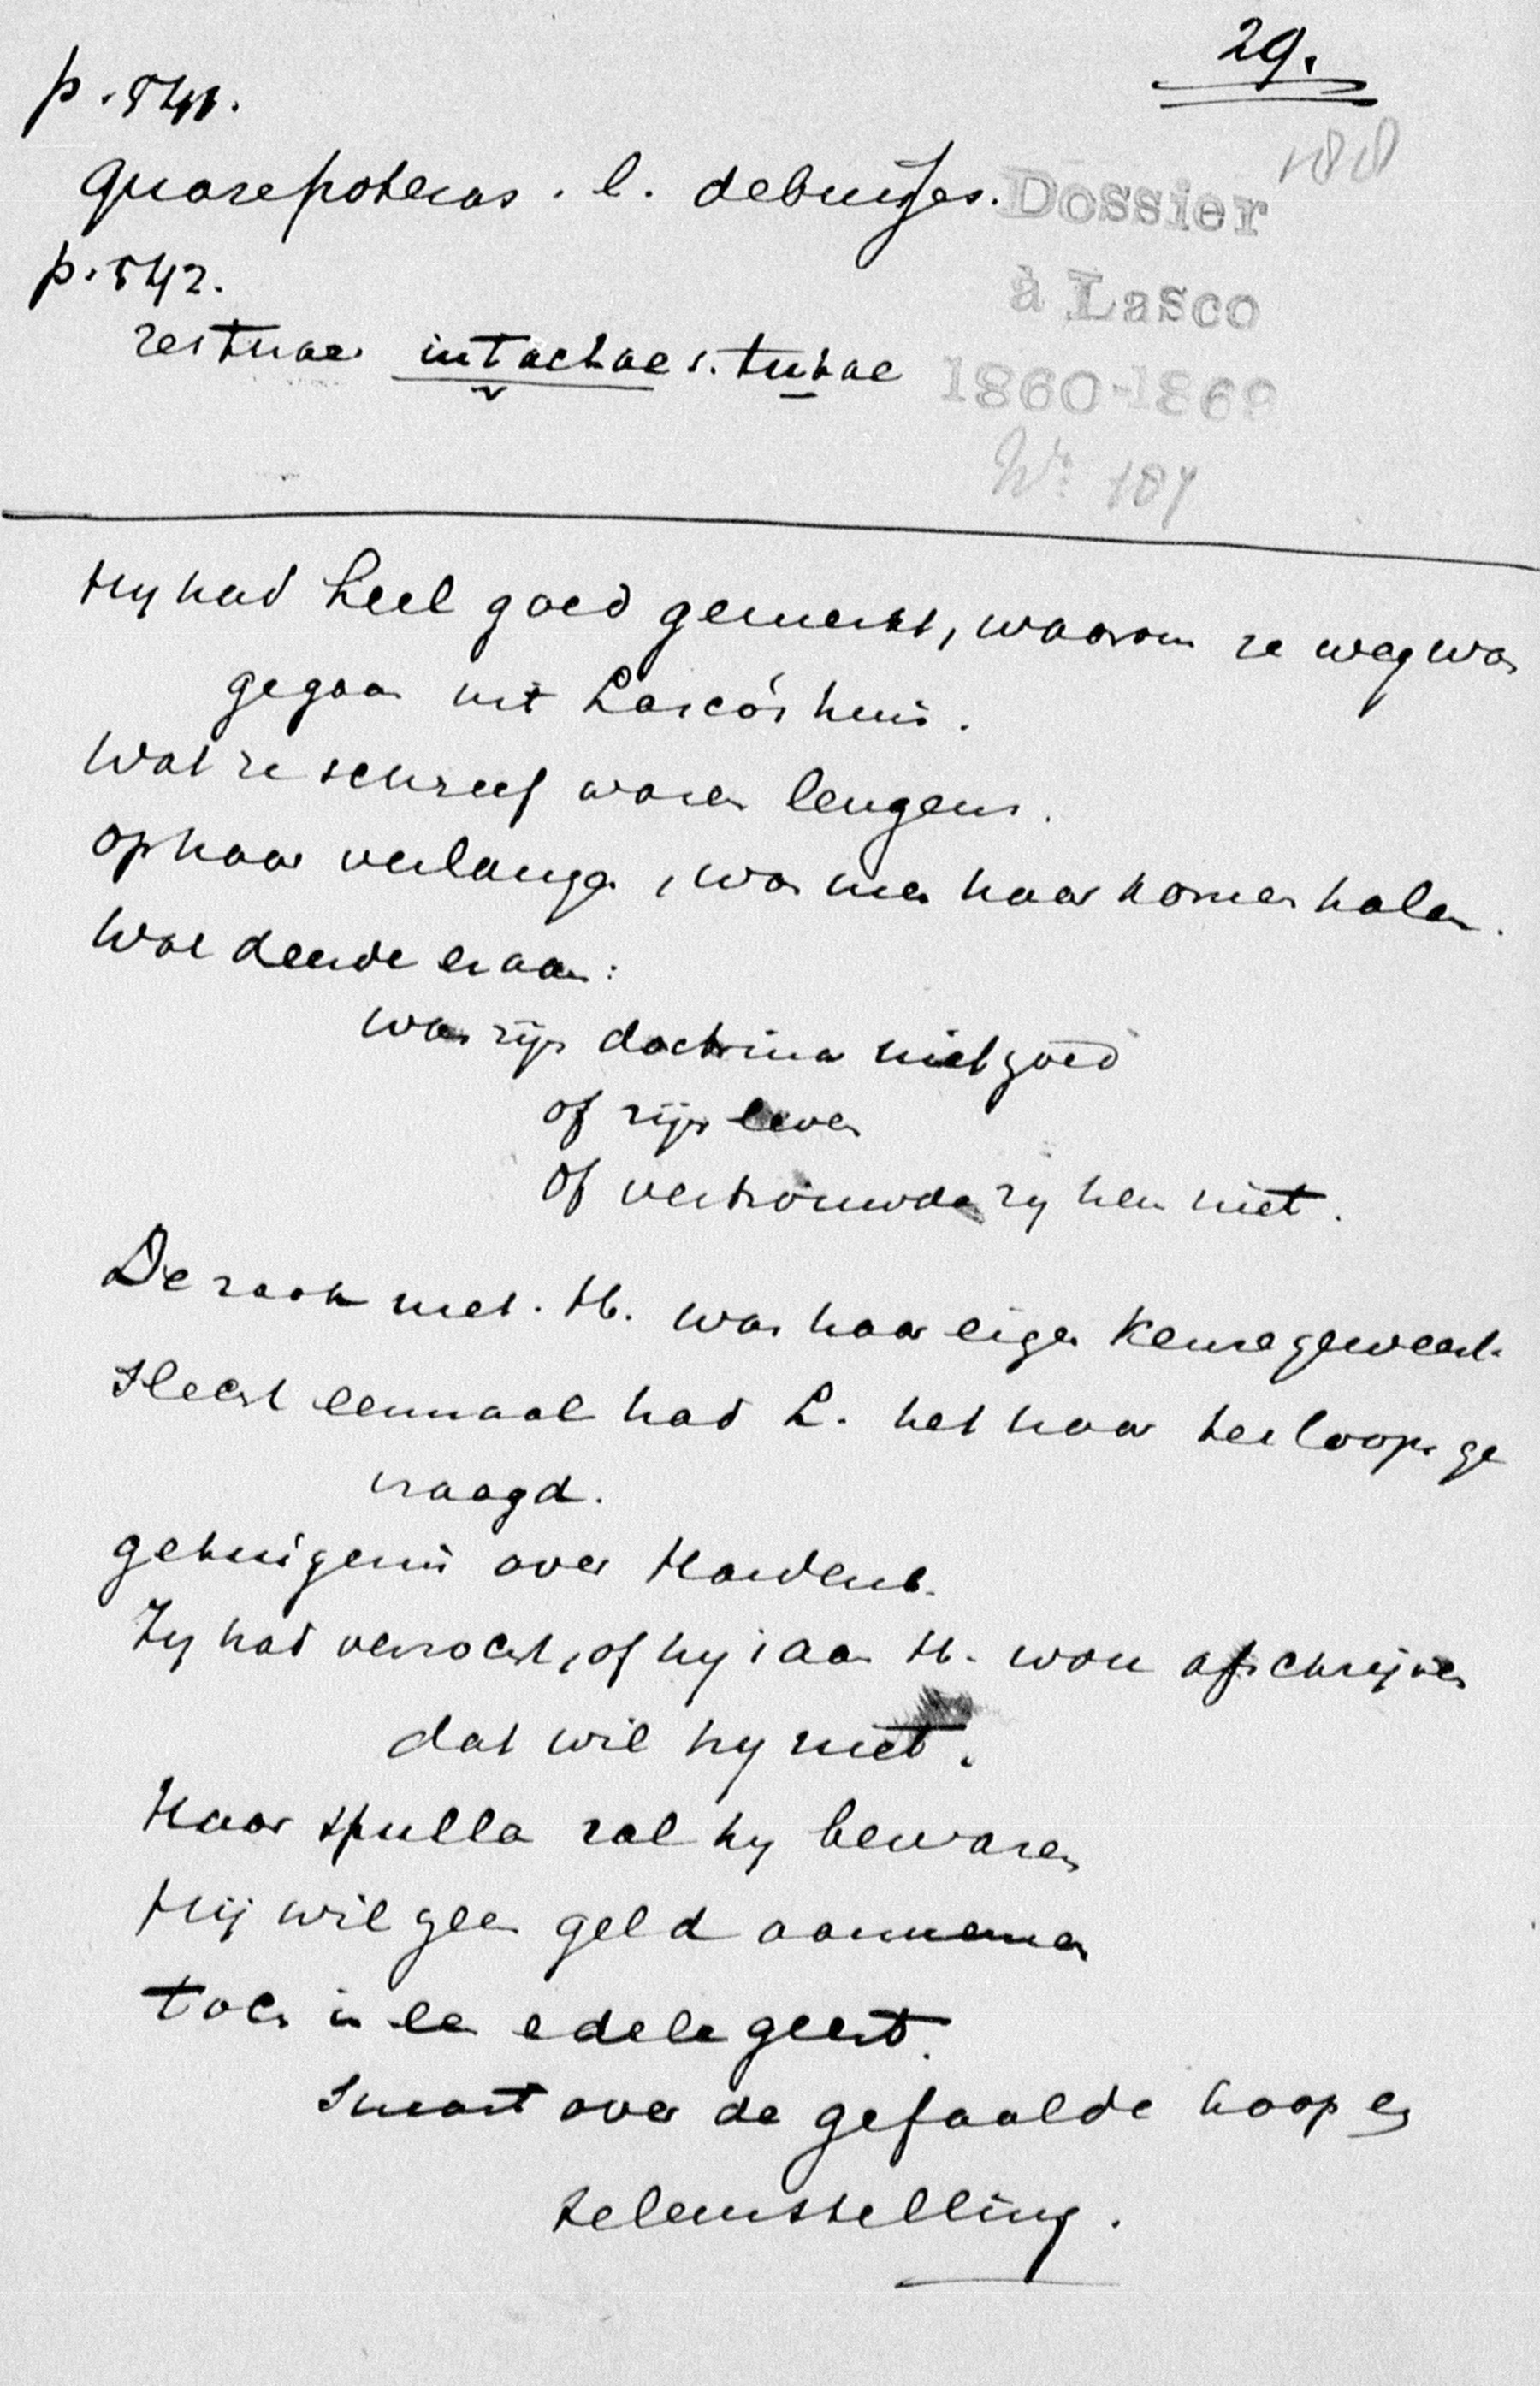 29.
p. 541.
188
quare poteras . l. debuisses.
Dossier
p. 542.
à Lasco
res tuae intactae s. tutae
1860-1869
No 187
Hy had heel goed gemerkt, waarom ze weg was
gegaan uit Lasco's huis.
Wat ze schreef waren leugens.
Op haar verlangen, was men haar komen halen.
Wat deerde eraan:
was zijn doctrina niet goed
of zijn leven
of vertrouwde zy hen niet.
De zaak met H. was haar eigen keuze geweest.
Slecht eenmaal had L. het haar terloops ge
vraagd.
getuigenis over Hardenb.
Zy had verzocht, of hy 't aan H. wou afschrijven
dat wil hy niet.
Haar spullen zal hy bewaren
Hij wil geen geld aannemen
toch is een edele geest.
Smart over de gefaalde hoop en
teleurstelling.